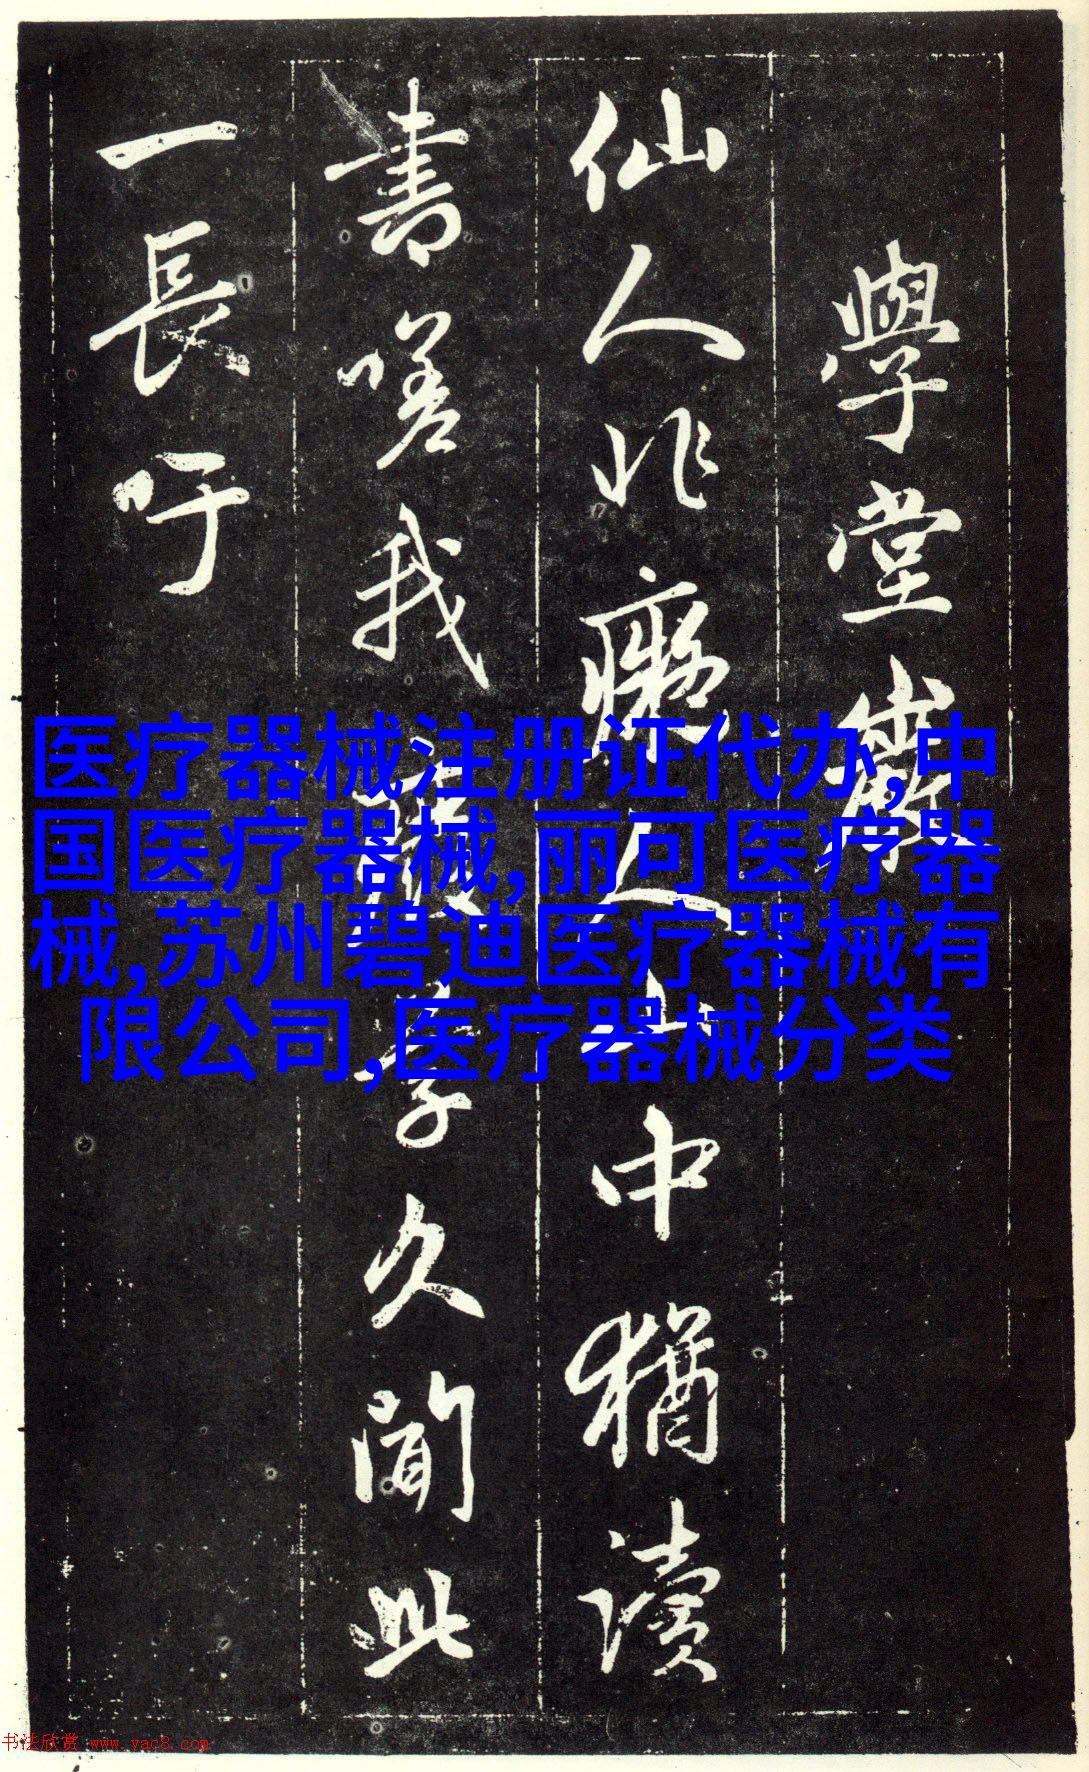 學堂巖
仙人非癡人山中猶讀
書嗟我廢學久聞此
一長吁
医疗器械注册证代办,中
国医疗器械,丽可医疗器
械,苏州碧迪医疗器械有
限公司,医疗器械分类
书法欣赏 www.yac8.com